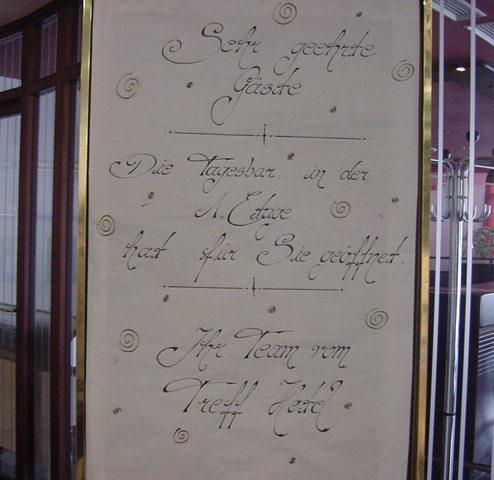 Sehr geehrte
Gäste
Die Tagesbar in der
1. Etage
hat für Sie geöffnet.
Ihr Team vom
Treff Hotel